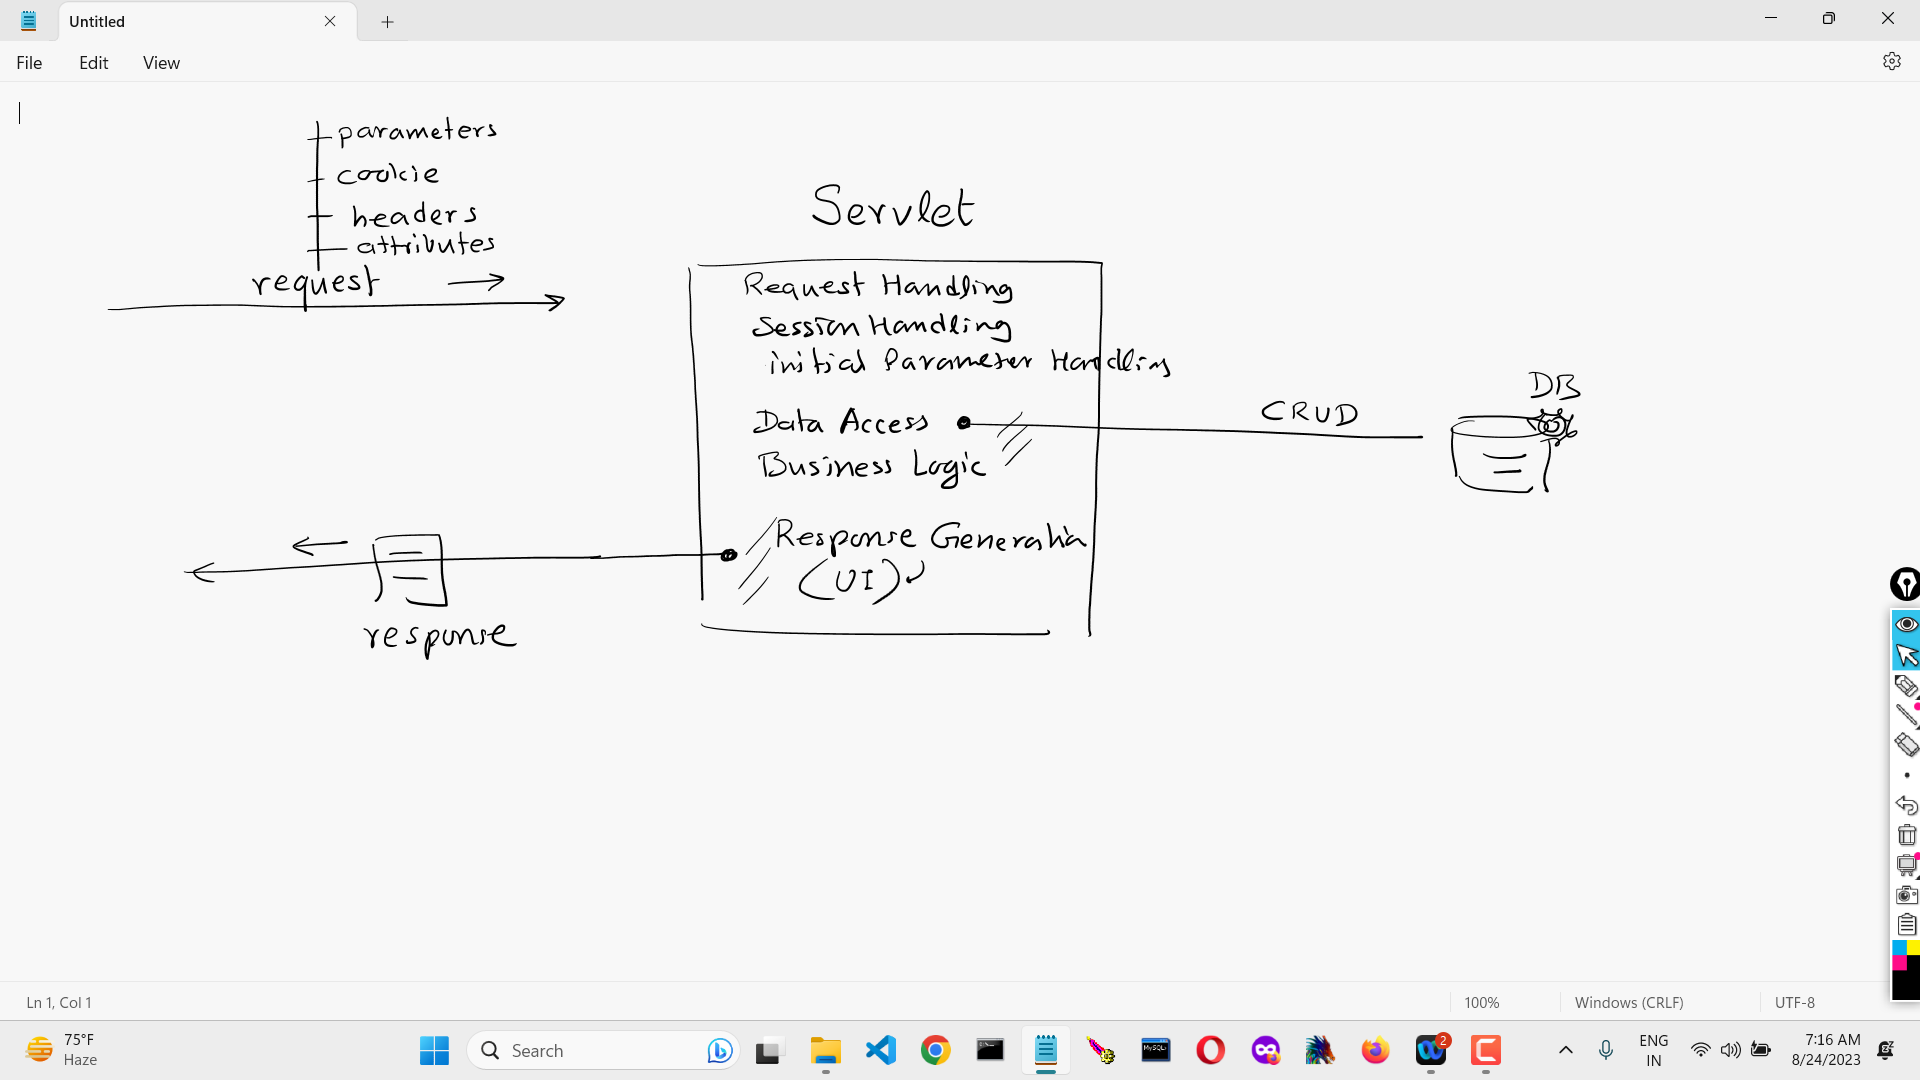 Untitled
File Edit View
parameters
cookie
headers
attributes
request
Servlet
Request Handling
Session Handling
initial Parameter Handling
Data Access
Business Logic
CRUD
DB
Response Generation
(UI)
response
Ln 1, Col 1
100%
Windows (CRLF)
UTF-8
75°F
Haze
Search
MySQL
2
ENG
IN
7:16 AM
8/24/2023